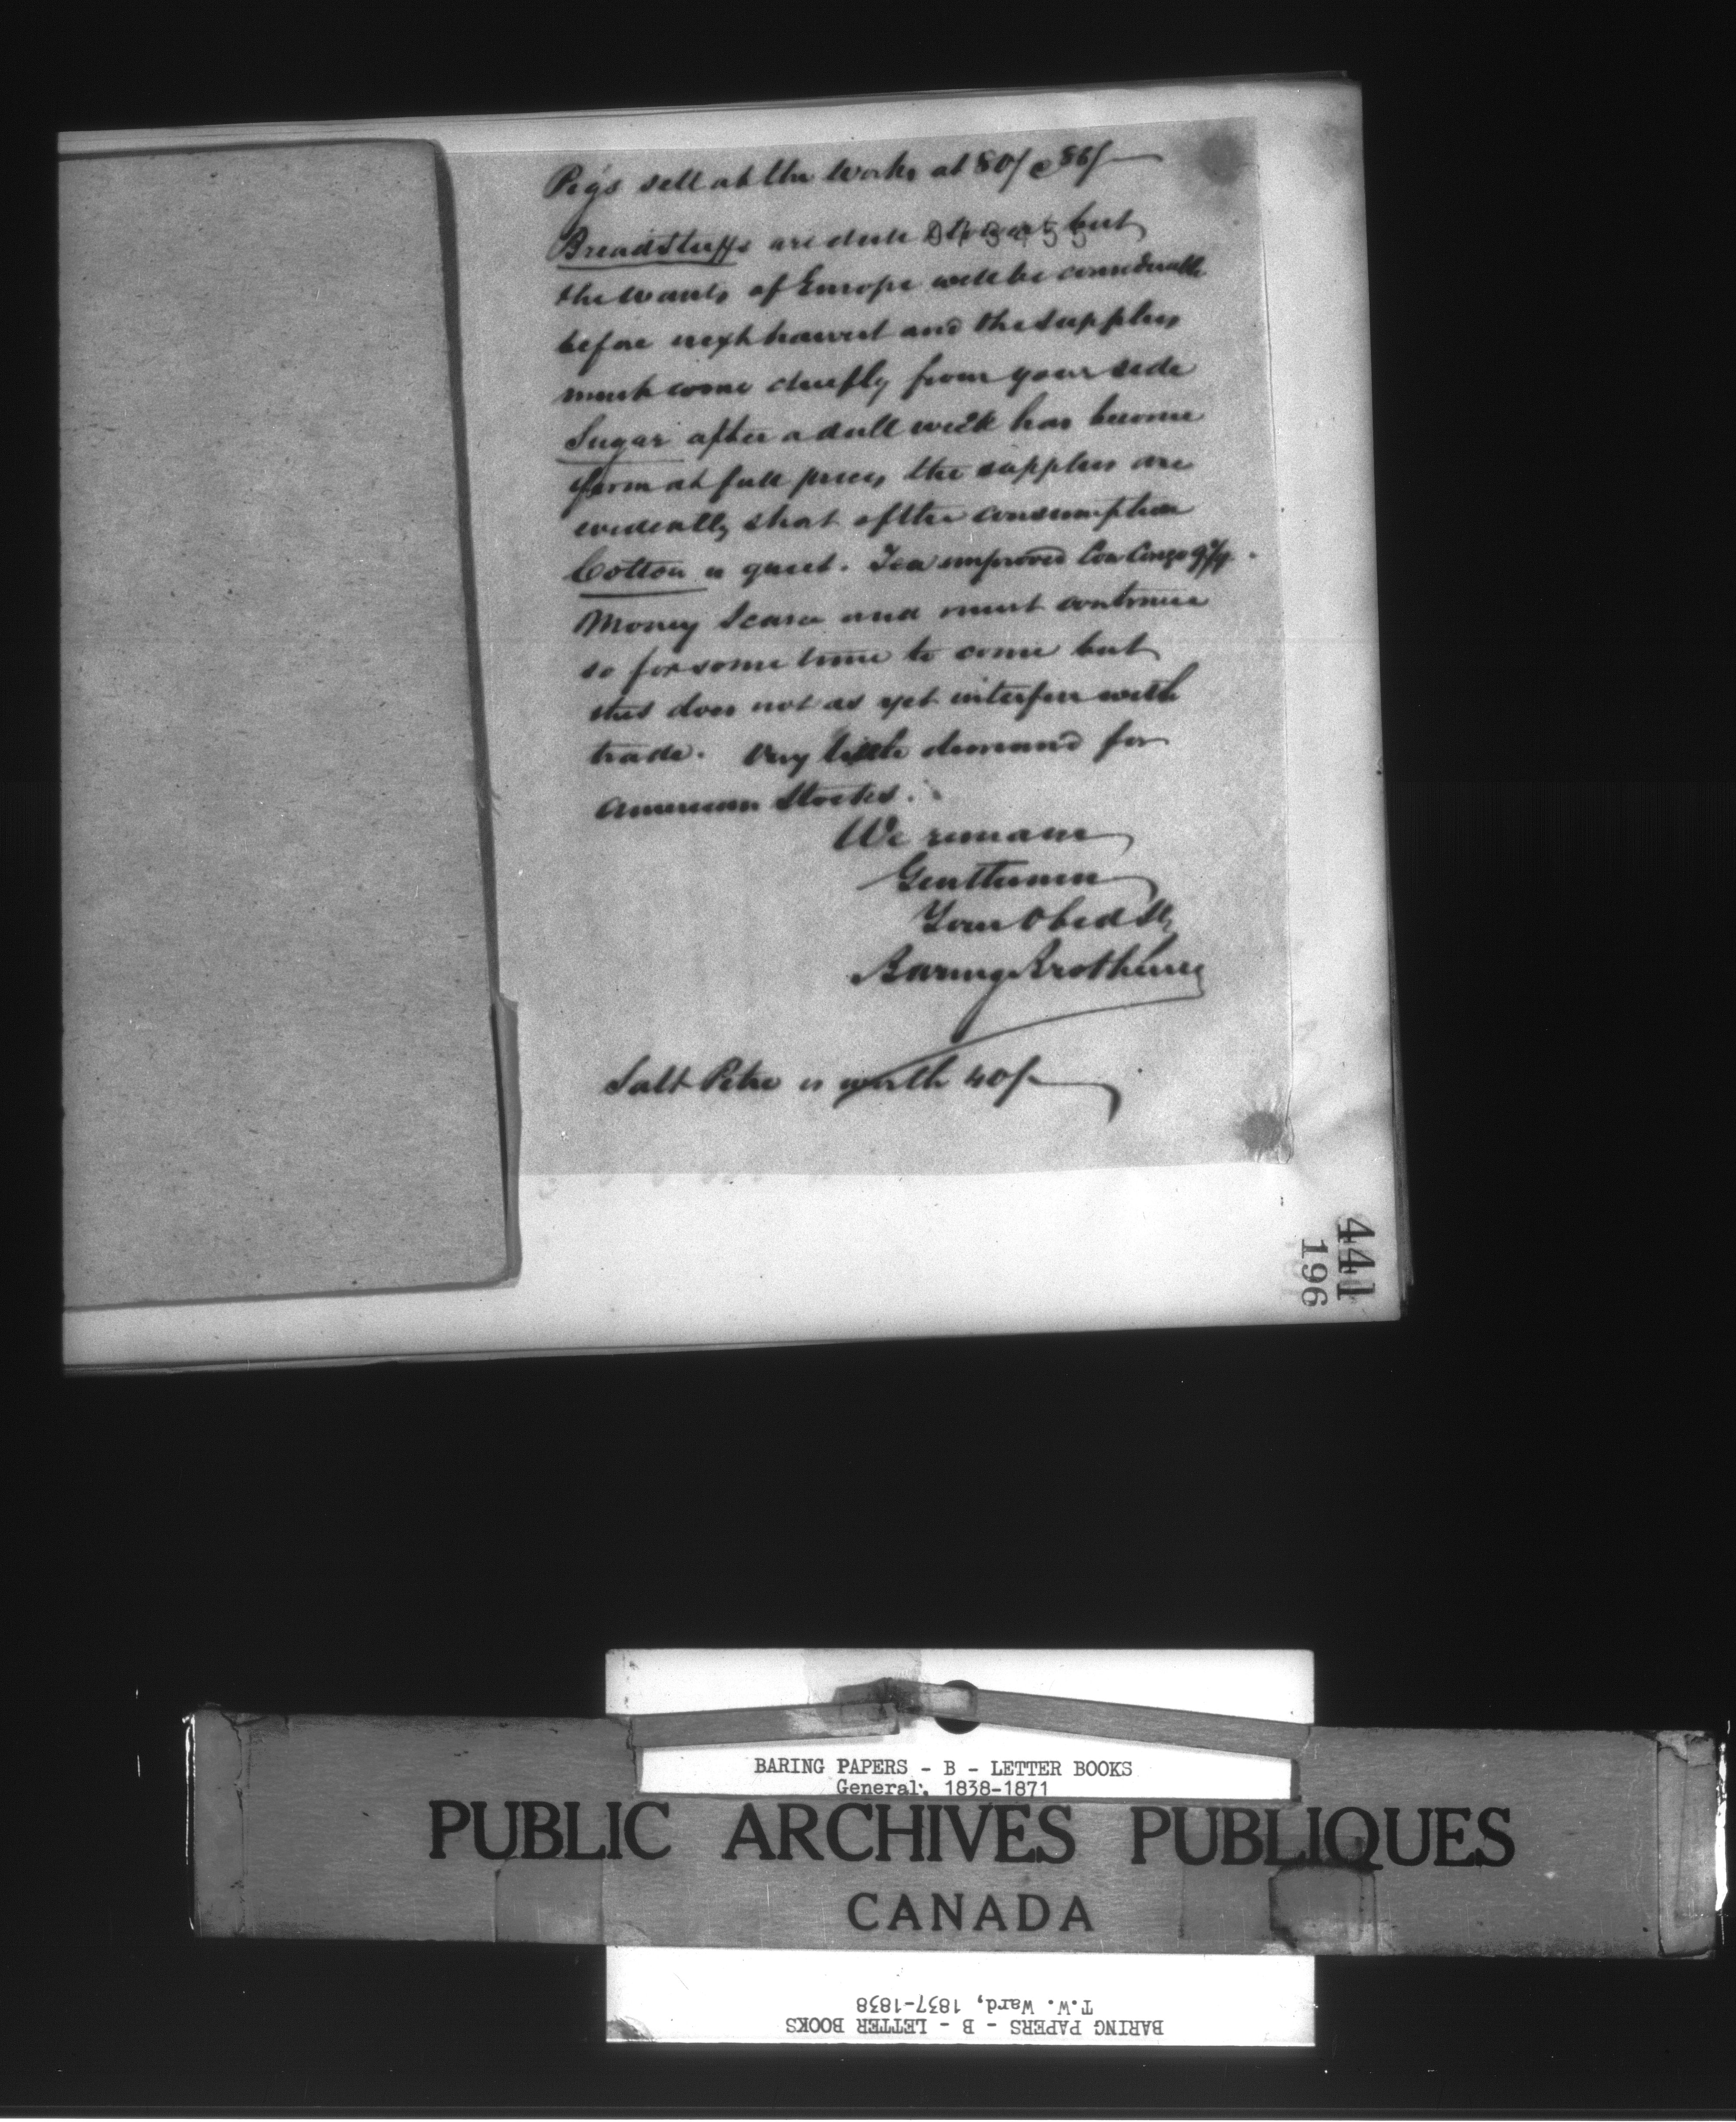 Pigs sell at the Works at 80/ @ 86/
Breadstuffs are dull but
the wants of Europe will be considerable
before next harvest and the supplies
must come chiefly from your side
Sugar after a dull week has become
firm at full prices, the supplies are
evidently short of the consumption
Cotton is quiet. Tea improved Com Congo
Money Scarce and must continue
so for some time to come but
this does not as yet interfere with
trade. Very little demand for
American Stocks.
We remain
Gentlemen
Your Obed Sts
Baring Brothers
Salt Petre is worth 40/
441
196
BARING PAPERS - B - LETTER BOOKS
General, 1838-1871
PUBLIC ARCHIVES PUBLIQUES
CANADA
T.W. Ward, 1837-1838
BARING PAPERS - B - LETTER BOOKS